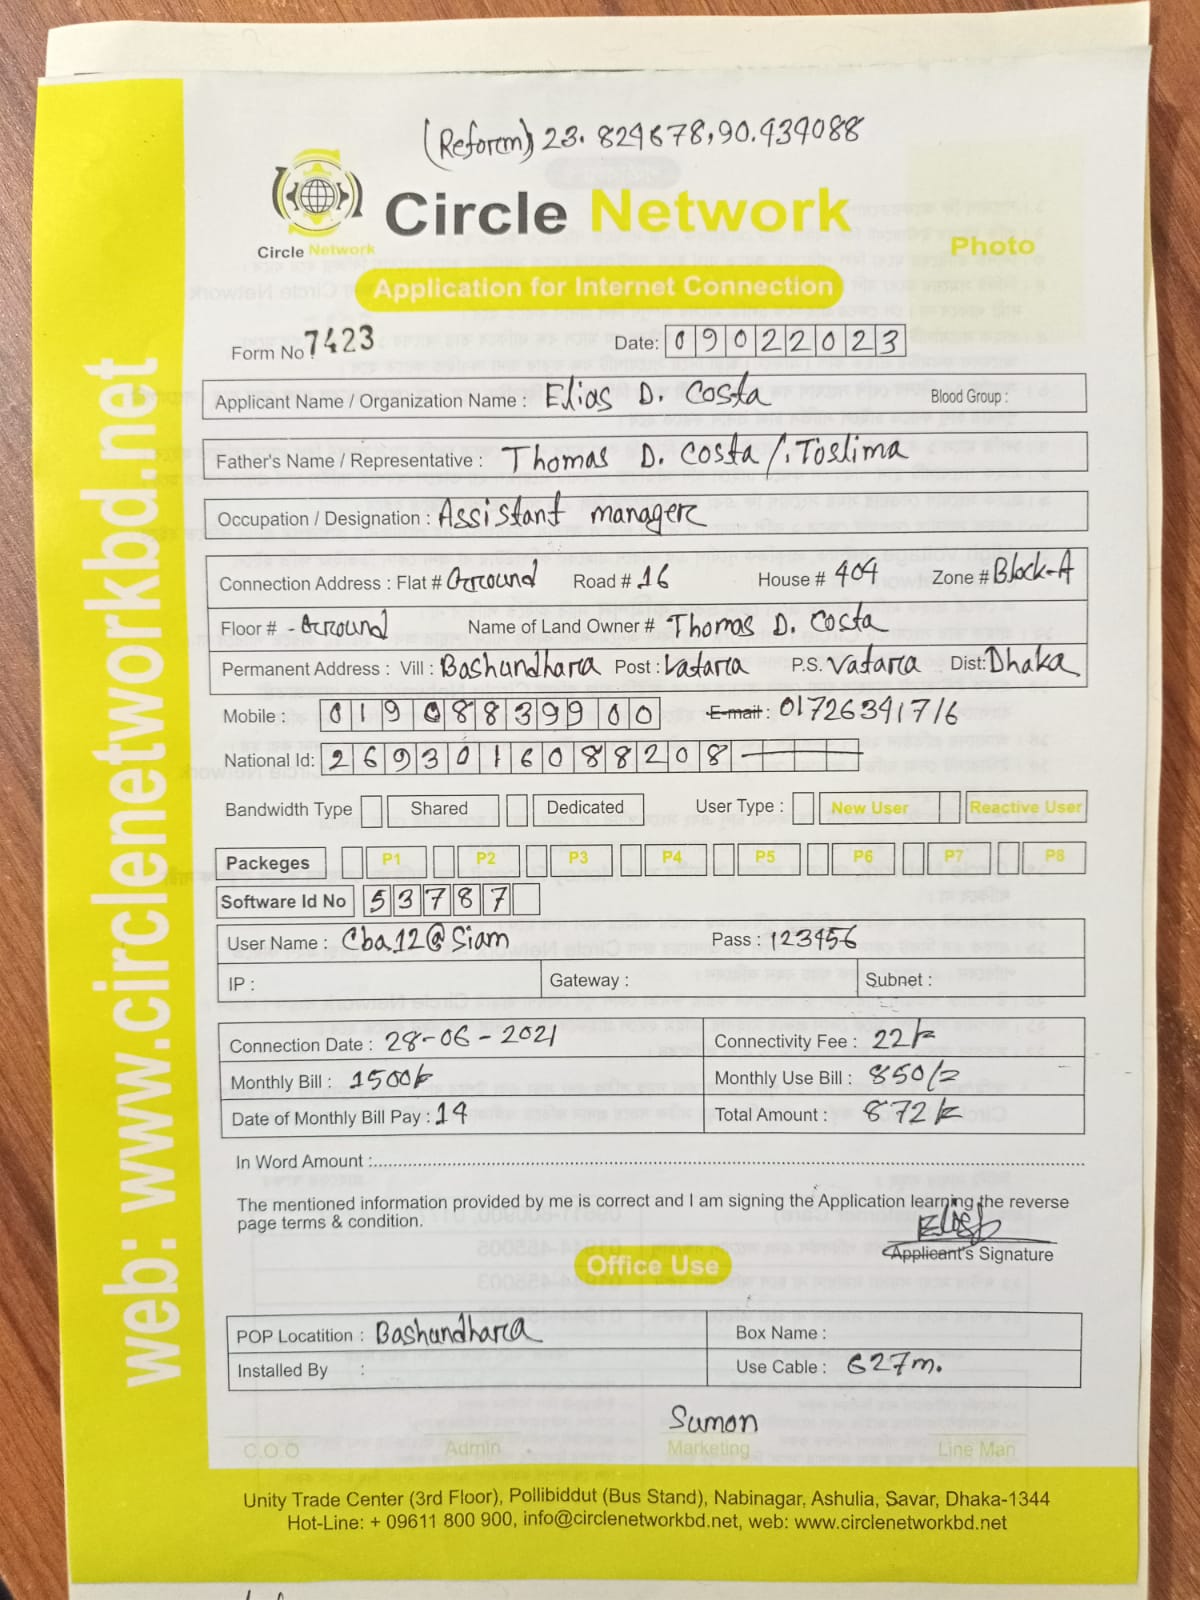 (Reform) 23.824678,90.434088
Circle Network
Circle Network
Photo
Application for Internet Connection
Form No 7423 Date: 09022023
Applicant Name / Organization Name : Elias D. Costa Blood Group :
Father's Name / Representative : Thomas D. Costa /. Toslima
Occupation / Designation : Assistant manager
Connection Address : Flat # Ground Road # 16 House # 404 Zone # Block-A
Floor # - Ground Name of Land Owner # Thomas D. Costa
Permanent Address : Vill : Bashundhara Post : Vatara P.S. Vatara Dist: Dhaka
Mobile : 01908839900 E-mail : 01726341716
National Id: 2693016088208
Bandwidth Type Shared Dedicated User Type : New User Reactive User
Packeges P1 P2 P3 P4 P5 P6 P7 P8
Software Id No 53787
User Name : Cba12@Siam Pass : 123456
IP : Gateway : Subnet :
Connection Date : 28-06-2021 Connectivity Fee : 22/=
Monthly Bill : 1500/= Monthly Use Bill : 850/=
Date of Monthly Bill Pay : 14 Total Amount : 872/=
In Word Amount :
The mentioned information provided by me is correct and I am signing the Application learning the reverse
page terms & condition.
Applicant's Signature
Office Use
POP Locatition : Bashundhara Box Name :
Installed By : Use Cable : 627m.
Sumon
C.O.O Admin Marketing Line Man
Unity Trade Center (3rd Floor), Pollibiddut (Bus Stand), Nabinagar, Ashulia, Savar, Dhaka-1344
Hot-Line: + 09611 800 900, info@circlenetworkbd.net, web: www.circlenetworkbd.net
web: www.circlenetworkbd.net